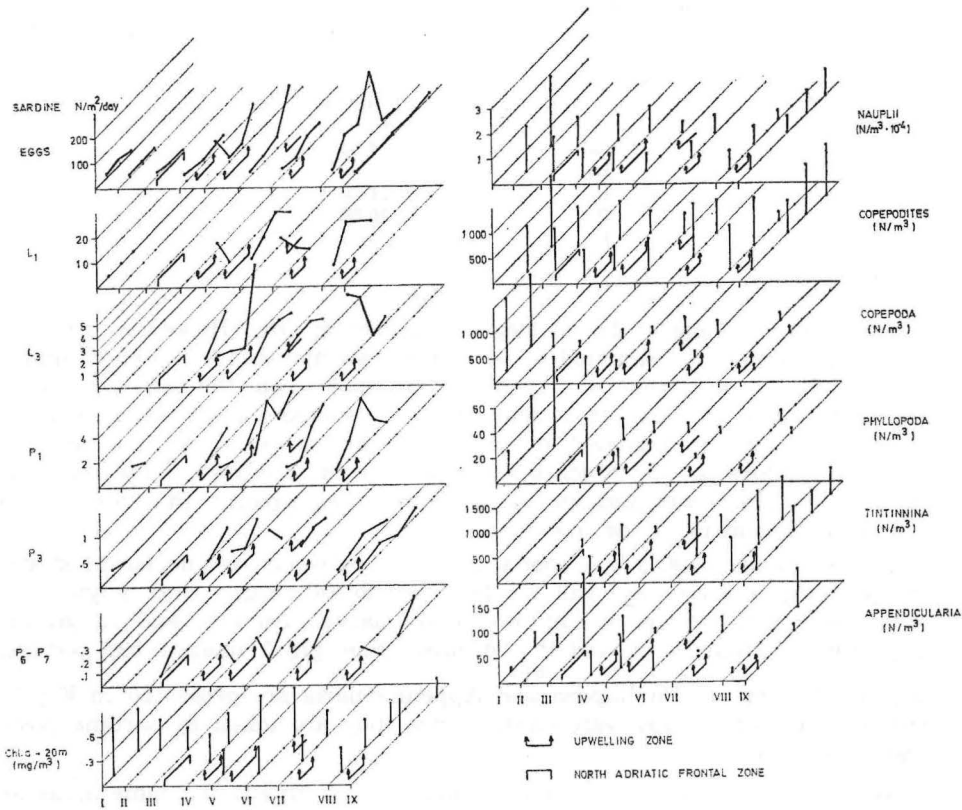 SARDINE N/m²/day
EGGS
200
100
L₁
20
10
L₃
5
4
3
2
1
P₁
4
2
P₃
1
.5
P₆ - P₇
.3
.2
.1
Chl.a - 20m
(mg/m³)
.5
.3
I II III IV V VI VII VIII IX
NAUPLII
(N/m³·10⁻⁴)
3
2
1
COPEPODITES
(N/m³)
1 000
500
COPEPODA
(N/m³)
1 000
500
PHYLLOPODA
(N/m³)
60
40
20
TINTINNINA
(N/m³)
1 500
1 000
500
APPENDICULARIA
(N/m³)
150
100
50
I II III IV V VI VII VIII IX
UPWELLING ZONE
NORTH ADRIATIC FRONTAL ZONE